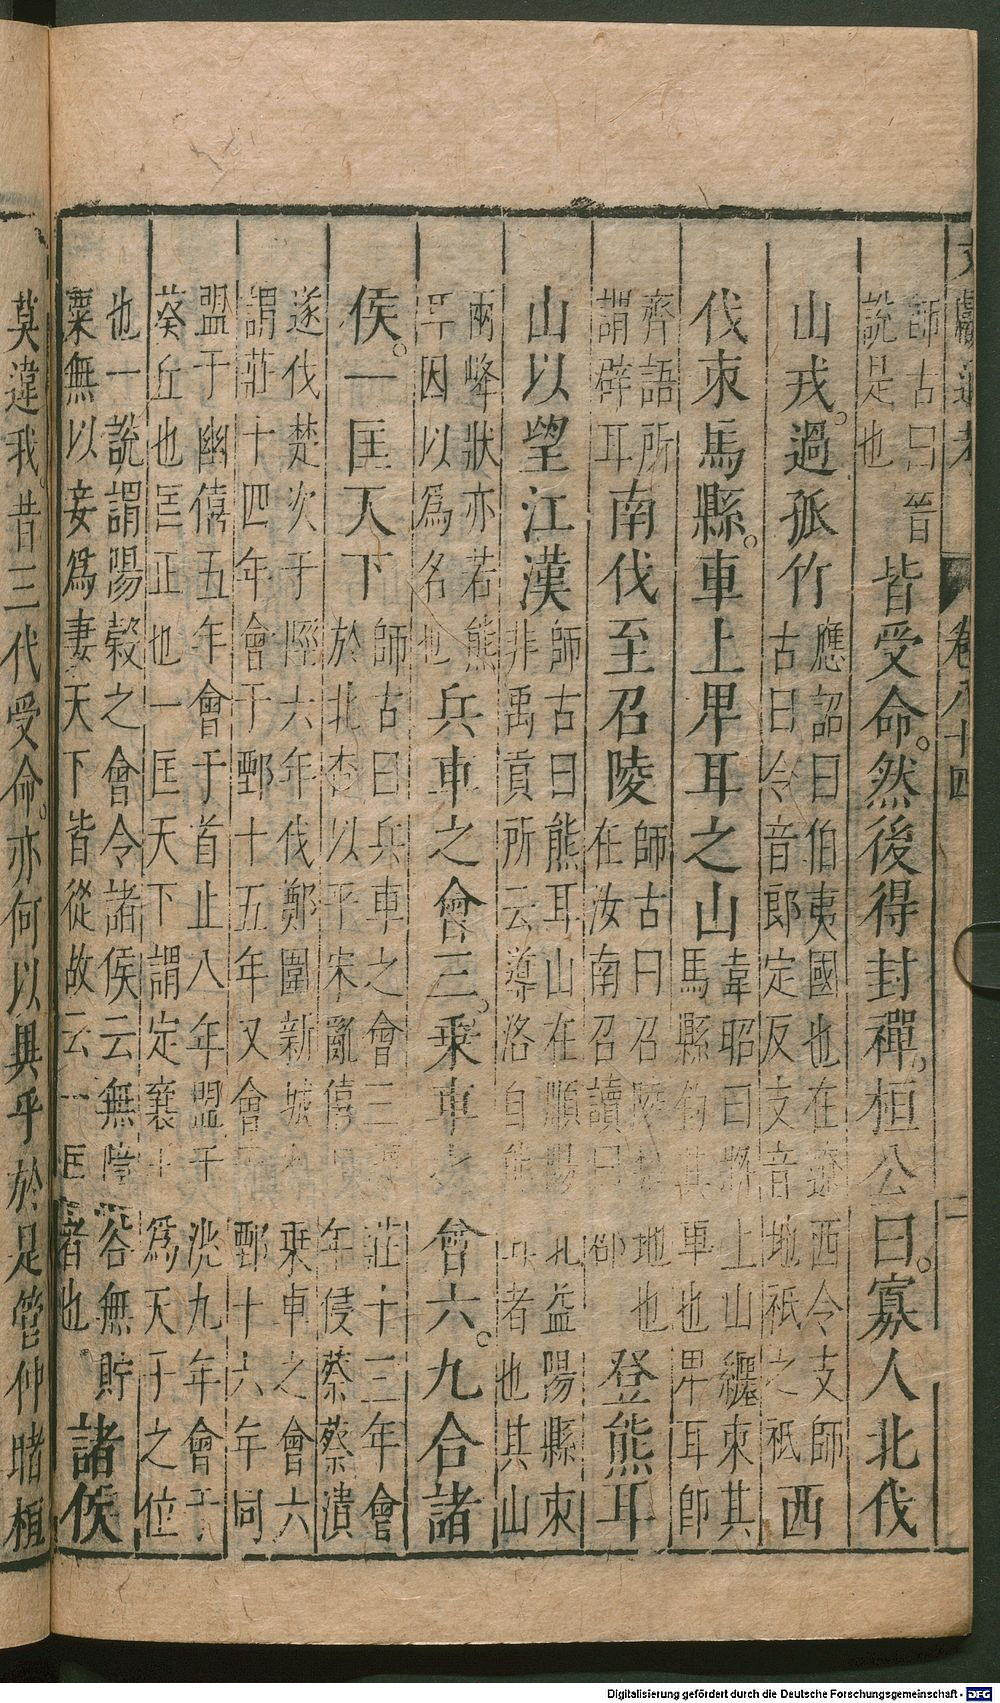 文獻通考 卷八十四 二
師古曰晉
說是也
皆受命。然後得封禪。桓公曰。寡人北伐
山戎。過孤竹
應詔曰伯夷國也在遼西令支師
古曰令音郎定反支音地祇之祇
西
伐束馬縣。車上卑耳之山
韋昭曰將上山纒束其
馬縣鉤其車也卑耳即
齊語所
謂辟耳
南伐至召陵
師古曰召陵地也
在汝南召讀曰邵
登熊耳
山以望江漢
師古曰熊耳山在順陽北益陽縣東
非禹貢所云導洛自熊耳者也其山
兩峰狀亦若熊
耳因以爲名也
兵車之會三。乗車之會六。九合諸
侯。一匡天下
師古曰兵車之會三莊十三年會
於北杏以平宋亂僖四年侵蔡蔡潰
遂伐楚次于陘六年伐鄭圍新城乗車之會六
謂莊十四年會于鄄十五年又會于鄄十六年同
盟于幽僖五年會于首止八年盟于洮九年會于
葵丘也匡正也一匡天下謂定襄王爲天子之位
也一說謂陽穀之會令諸侯云無障谷無貯
粟無以妾爲妻天下皆從故云一匡者也
諸侯
莫違我。昔三代受命。亦何以異乎於是管仲睹桓
Digitalisierung gefördert durch die Deutsche Forschungsgemeinschaft - DFG